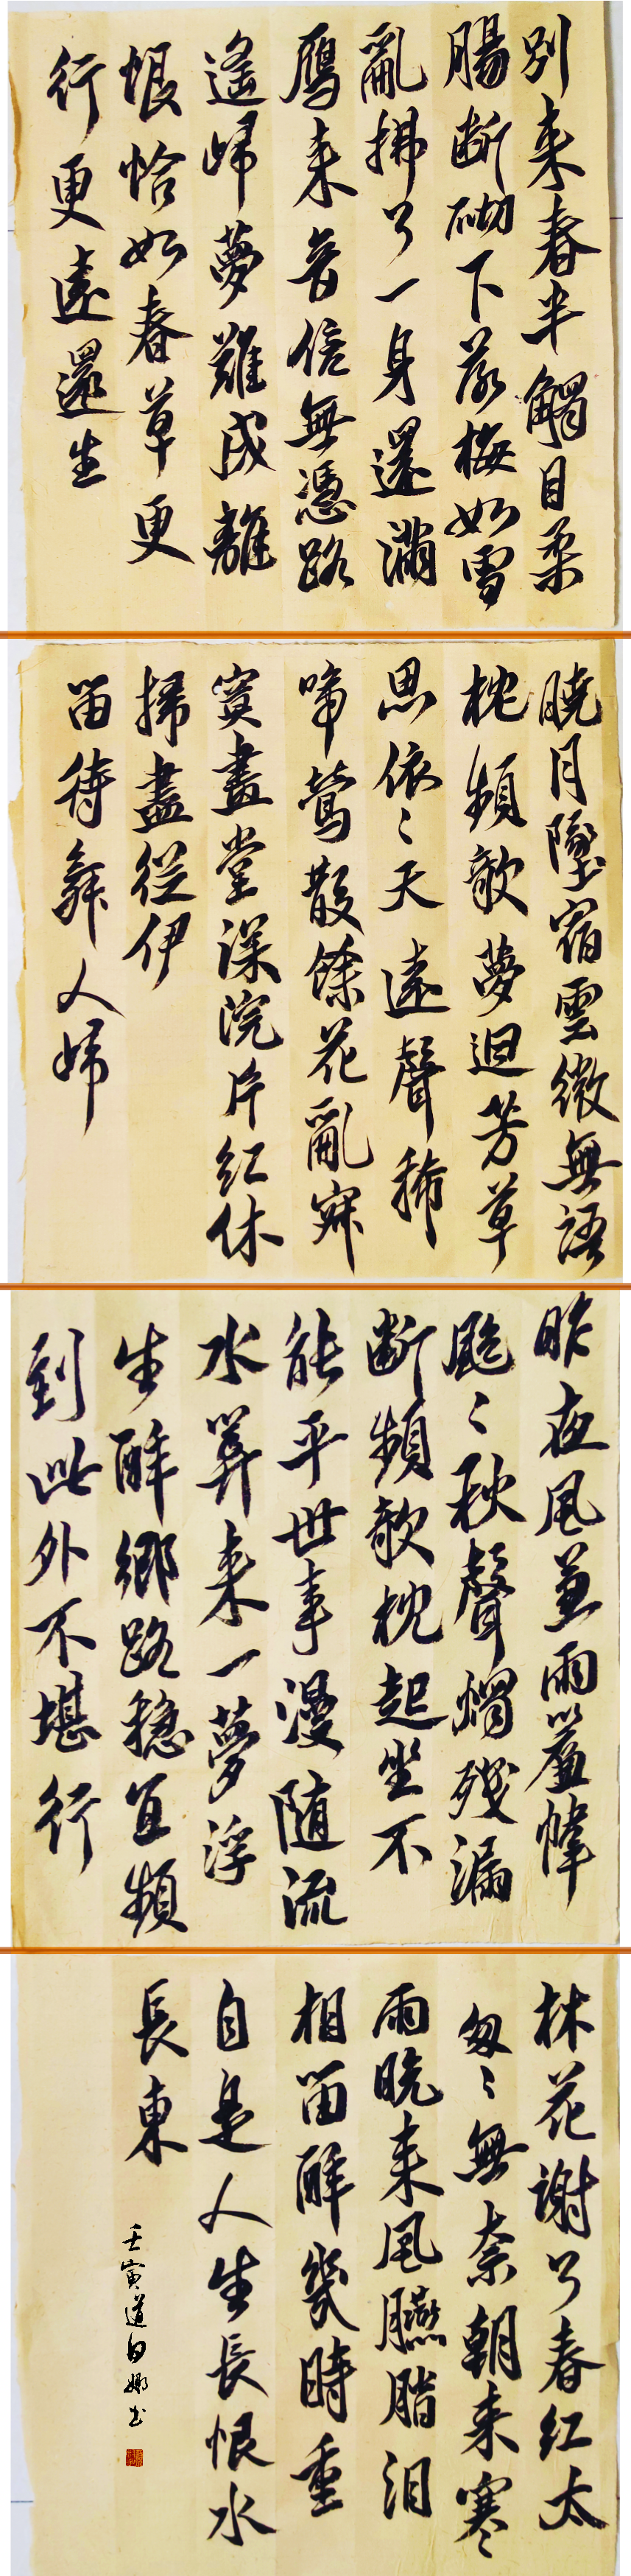 別来春半觸目柔
腸断砌下落梅如雪
亂拂了一身還滿
鴈来音信無憑路
遙歸夢難成離
恨恰如春草更
行更遠還生
曉月墜宿雲微無語
枕頻欹夢迴芳草
思依〻天遠聲稀
啼鶯散餘花亂寂
寞畫堂深院片红休
掃盡從伊
留待舞人歸
昨夜風兼雨簾幃
颯〻秋聲燭残漏
断頻欹枕起坐不
能平世事漫随流
水算来一夢浮
生醉鄉路穩宜頻
到此外不堪行
林花謝了春红太
匆〻無奈朝来寒
雨晚来風臙脂泪
相留醉幾時重
自是人生長恨水
長東
壬寅道白娜书